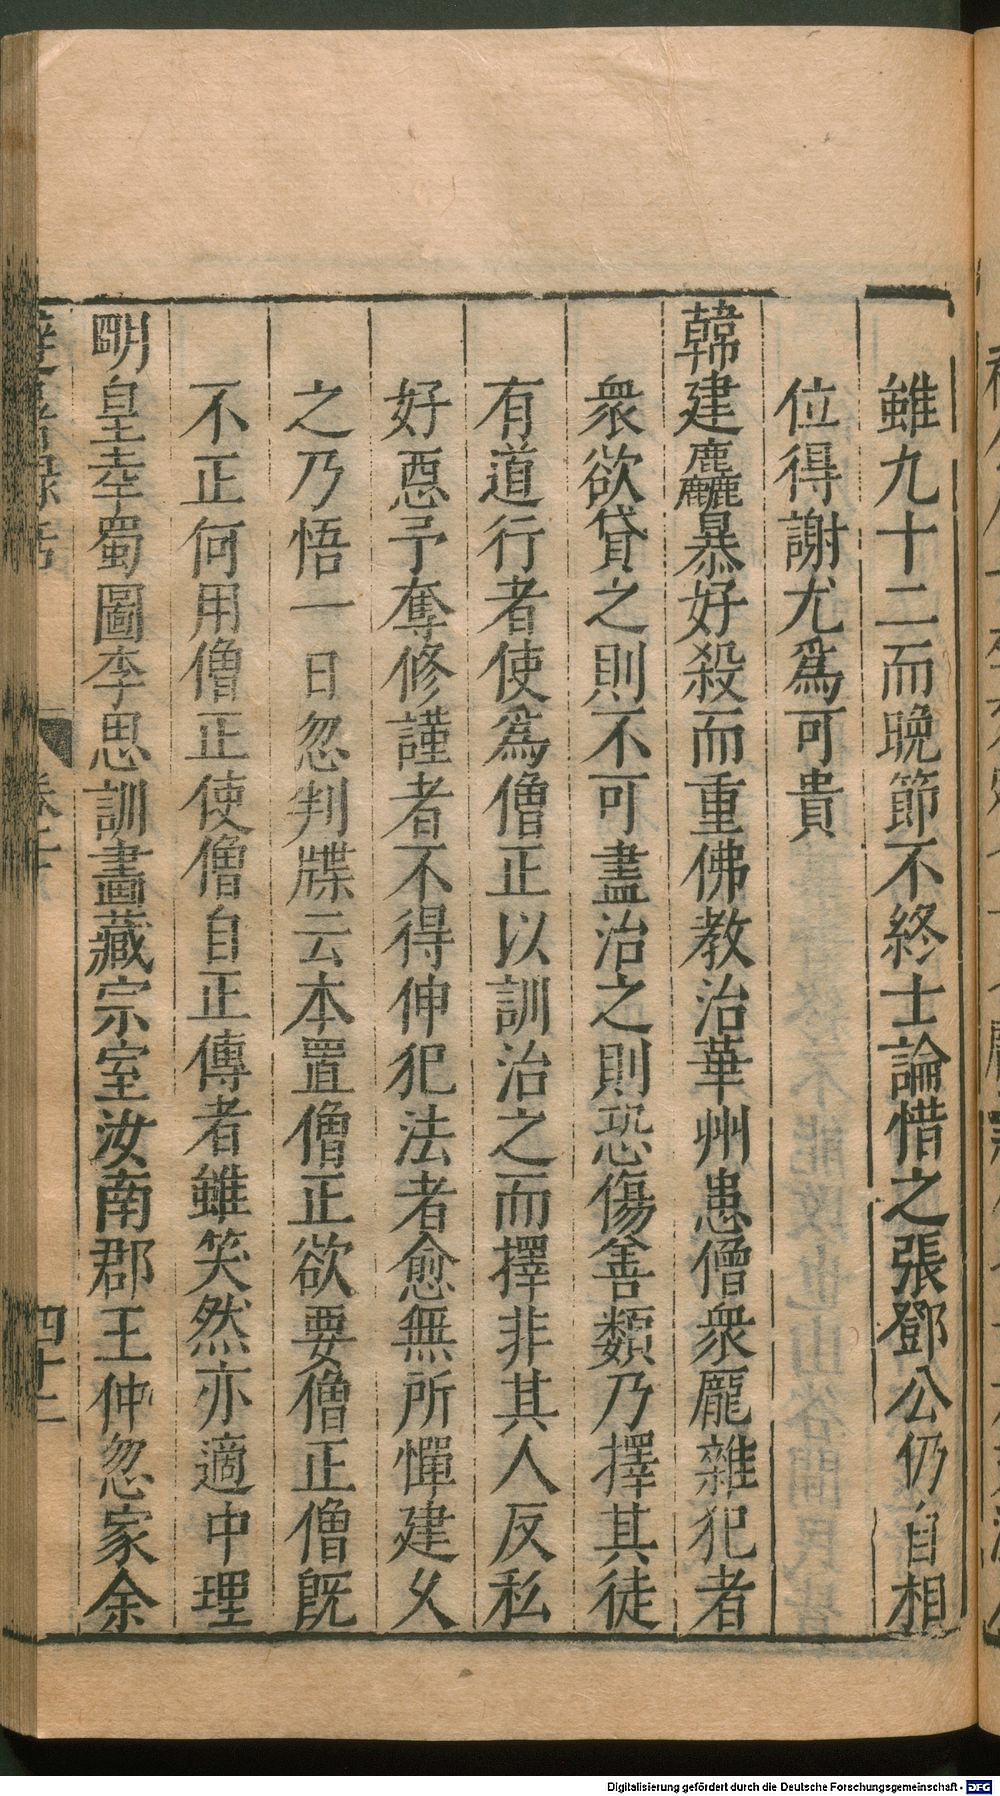 雖九十二而晩節不終士論惜之張鄧公仍自相
位得謝尤爲可貴
韓建麤暴好殺而重佛教治華州患僧衆龎雜犯者
衆欲貸之則不可盡治之則恐傷善類乃擇其徒
有道行者使爲僧正以訓治之而擇非其人反私
好惡予奪修謹者不得伸犯法者愈無所憚建乆
之乃悟一日忽判牒云本置僧正欲要僧正僧旣
不正何用僧正使僧自正傳者雖笑然亦適中理
明皇幸蜀圖李思訓畫藏宗室汝南郡王仲忽家余
四十二
Digitalisierung gefördert durch die Deutsche Forschungsgemeinschaft - DFG